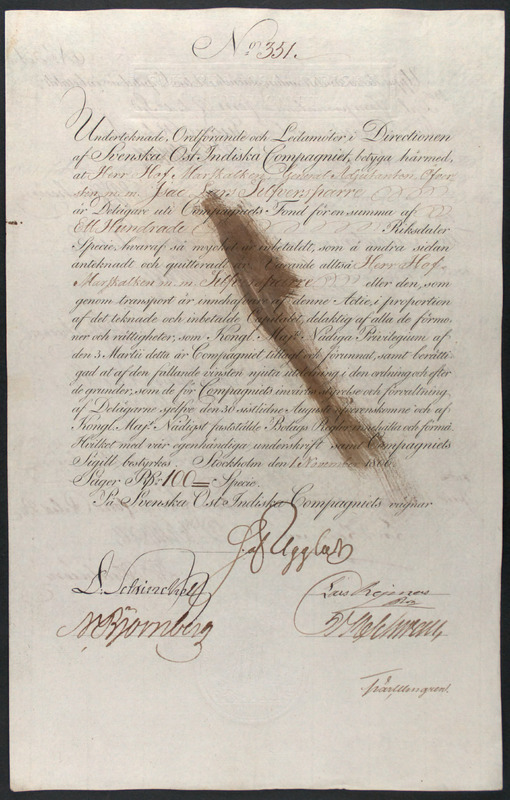 No. 351.
Underteknade, Ordförande och Ledamöter i Directionen
af Svenska Ost Indiska Compagniet, betyga härmed,
at Herr Hof Marskalken, General Adjutanten, Öfver-
sten, m. m. Isac Lars Silfversparre
är Delägare uti Compagniets Fond för en summa af
Ett Hundrade Riksdaler
Specie, hvaraf så mycket är inbetaldt, som å andra sidan
anteknadt och quitteradt är. Varande altså Herr Hof-
Marskalken m. m. Silfversparre eller den, som
genom transport är innehafvare af denne Actie, i proportion
af det teknade och inbetalde Capitalet, delaktig af alla de förmo-
ner och rättigheter, som Kongl. Maj:ts Nådiga Privilegium af
den 3 Martii detta år Compagniet tillagt och förunnat, samt berätti-
gad at af den fallande vinsten njuta utdelning i den ordning och efter
de grunder, som de för Compagniets invärtes styrelse och förvaltning
af Delägarne sjelfve den 30 sistlidne Augusti öfverenskomne och af
Kongl. Maj:t Nådigst fastställde Bolags Reglor innehålla och förmå.
Hvilket med vår egenhändiga underskrift samt Compagniets
Sigill bestyrkes. Stockholm den 1 November 1806.
Säger Rd:r 100 Specie.
På Svenska Ost Indiska Compagniets vägnar
af Ugglas
Björnberg